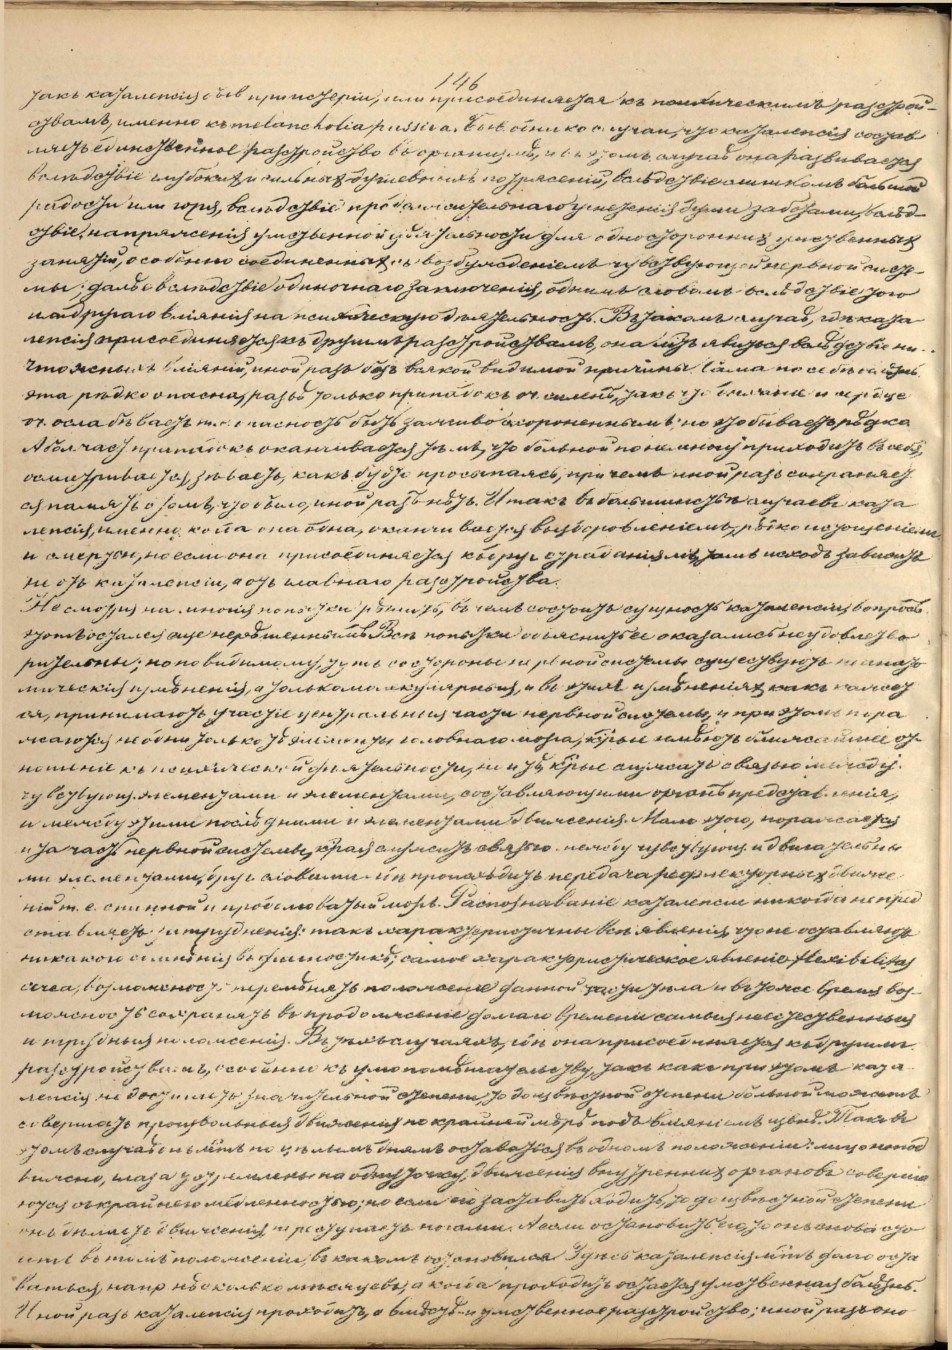 146
такъ каталепсія бываетъ при истеріи, или присоединяется къ психическимъ разстрой-
ствамъ, именно къ melancholia passiva. Бываютъ однако случаи, что каталепсія состав
ляетъ единственное разстройство въ организмѣ, и въ этомъ случаѣ она развивается
вслѣдствіе глубокихъ и сильныхъ душевныхъ потрясеній, вслѣдствіе слишкомъ большой
радости или горя, вслѣдствіе продолжительнаго угнетенія души заботами, вслѣд-
ствіе напряженія умственной дѣятельности для одностороннихъ умственныхъ
занятій, особенно соединенныхъ съ возбужденіемъ чувствующей нервной систе-
мы; далѣе вслѣдствіе одиночнаго заключенія, однимъ словомъ вслѣдствіе того
или другаго вліянія на психическую дѣятельность. Въ такомъ случаѣ, гдѣ ката
лепсія присоединяется къ другимъ разстройствамъ, она можетъ явиться вслѣдствіе ни-
чтожныхъ вліяній, иной разъ безъ всякой видимой причины. Сама по себѣ болѣзнь
эта рѣдко опасна, развѣ только припадокъ оч. силенъ, такъ что дыханіе и сердце
оч. ослабѣваетъ т. е. опасность быть заживо схороненнымъ; но это бываетъ рѣдко.
А б. часть припадокъ оканчивается тѣмъ, что больной понемногу приходитъ въ себя,
осматривается, зѣваетъ, какъ будто просыпаясь, при чемъ иной разъ сохраняет
ся память о томъ, что было, иной разъ нѣтъ. И такъ въ большинствѣ случаевъ ката
лепсія, именно когда она одна, оканчивается выздоровленіемъ, рѣдко истощеніемъ
и смертью, но если она присоединяется къ друг. страданіямъ, тамъ исходъ зависитъ
не отъ каталепсіи, а отъ главнаго разстройства.
Не смотря на многія попытки рѣшить, въ чемъ состоитъ сущность каталепсіи, вопросъ
этотъ остался еще нерѣшеннымъ. Всѣ попытки объяснить ее оказались неудовлетво
рительны; но по видимому, тутъ со стороны нервной системы существуютъ не анато
мическія измѣненія, а только молекулярныя, и въ этихъ измѣненіяхъ какъ кажет
ся, принимаютъ участіе центральныя части нервной системы, и при этомъ пора
жаются не одни только тѣ элементы головнаго мозга, котрые имѣютъ ближайшее от-
ношеніе къ психической дѣятельности, но и тѣ, котрые служатъ связью между
чувствующ. элементами и элементами, составляющими органъ представленія,
и между этими послѣдними и элементами движенія. Мало этого, поражается
и та часть нервной системы, котрая служитъ связью между чувствующ. и двигательны
ми элементами, друг. словами гдѣ происходитъ передача рефлекторныхъ движе
ній т. е. спинной и продолговатый мозгъ. Распознаваніе каталепсіи никогда не пред
ставляетъ затрудненія: такъ характеристичны всѣ явленія, что не оставляютъ
никакого сомнѣнія въ діагностикѣ; самое характеристическое явленіе flexibilitas
cerea, возможность перемѣнять положеніе данной части тѣла и въ тоже время воз-
можность сохранять въ продолженіе долгаго времени самыя неестественныя
и трудныя положенія. Въ тѣхъ случаяхъ, гдѣ она присоединяется къ другимъ
разстройствамъ, особенно къ умопомѣшательству, такъ какъ при этомъ ката
лепсія не достигаетъ значительной степени, то до извѣстной степени больной можетъ
совершать произвольныя движенія по крайней мѣрѣ подъ вліяніемъ извнѣ. Такъ въ
этомъ случаѣ больные по цѣлымъ днямъ остаются въ одномъ положеніи: лицо непод
вижно, глаза устремлены на одну точку, движенія внутреннихъ органовъ соверша
ются съ крайнею медленностью; но если его заставить ходить, то до извѣстной степени
онъ дѣлаетъ движенія и переступаетъ ногами. А если остановить его, то онъ снова сто
итъ въ томъ положеніи, въ какомъ остановился. Здѣсь каталепсія можетъ долго оста
ваться, напр. нѣсколько мѣсяцевъ, а когда проходитъ остается умственная болѣзнь.
Иной разъ каталепсія проходитъ, а вмѣстѣ и умственное разстройство; иной разъ оно